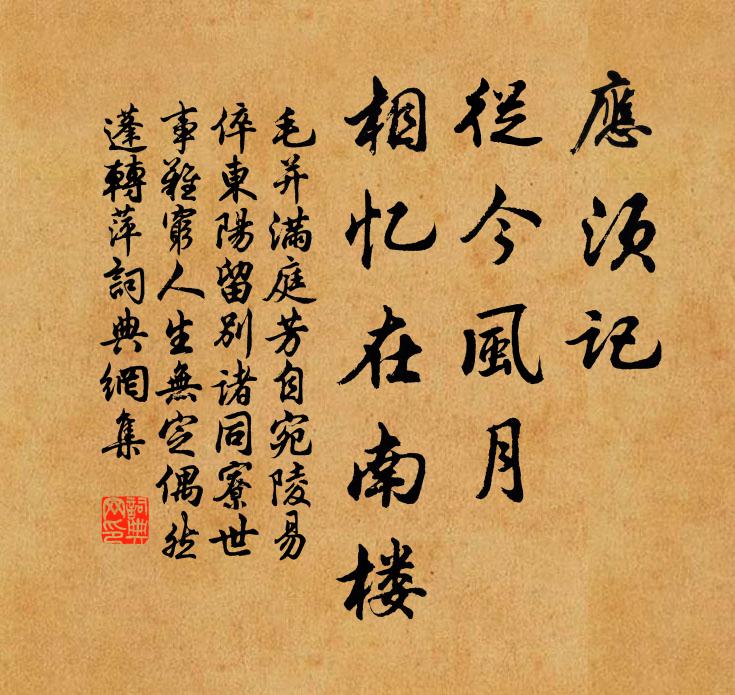 應须记
從今風月
相忆在南楼
毛并滿庭芳自宛陵易
倅東陽留别诸同寮世
事難窮人生無定偶然
蓬轉萍詞典網集
詞典網印